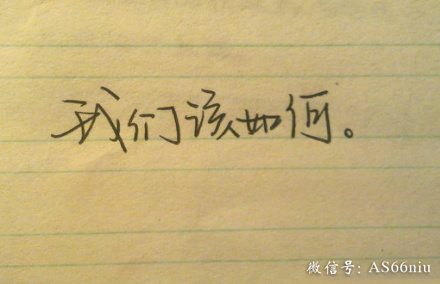 我们该如何。
微信号: AS66niu